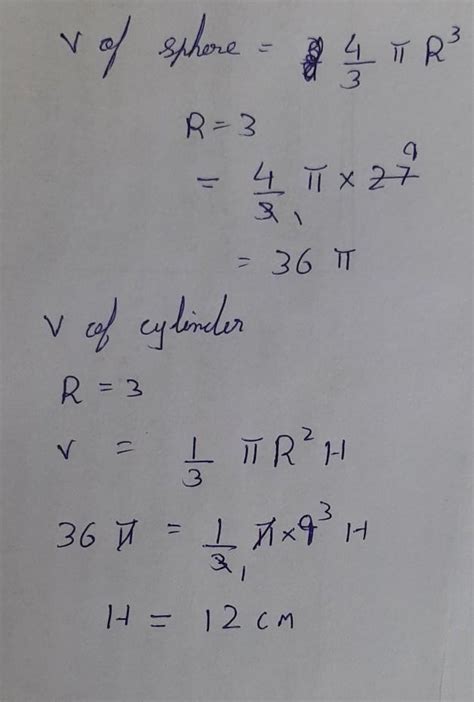 V of sphere = 4/3 π R³
R = 3
= 4/3 1 π × 27 9
= 36 π
V of cylinder
R = 3
V = 1/3 π R² H
36 π = 1/3 1 π × 9 3 H
H = 12 cm